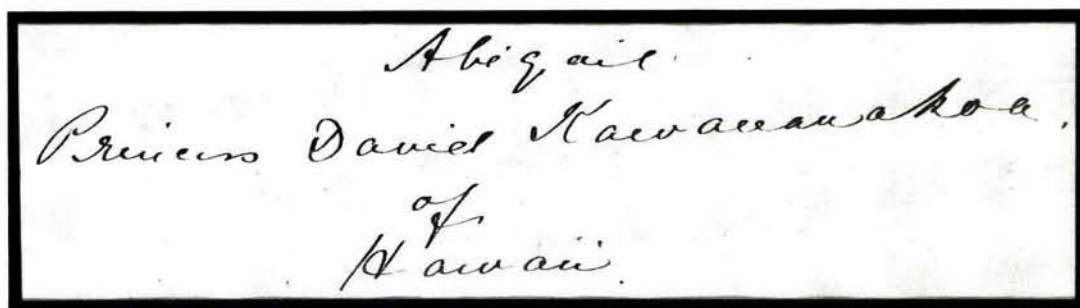 Abigail
Princess David Kawananakoa.
of
Hawaii.